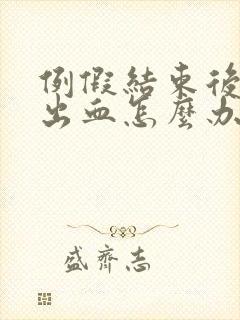 例假結束後
出血怎麼办
盛齊志